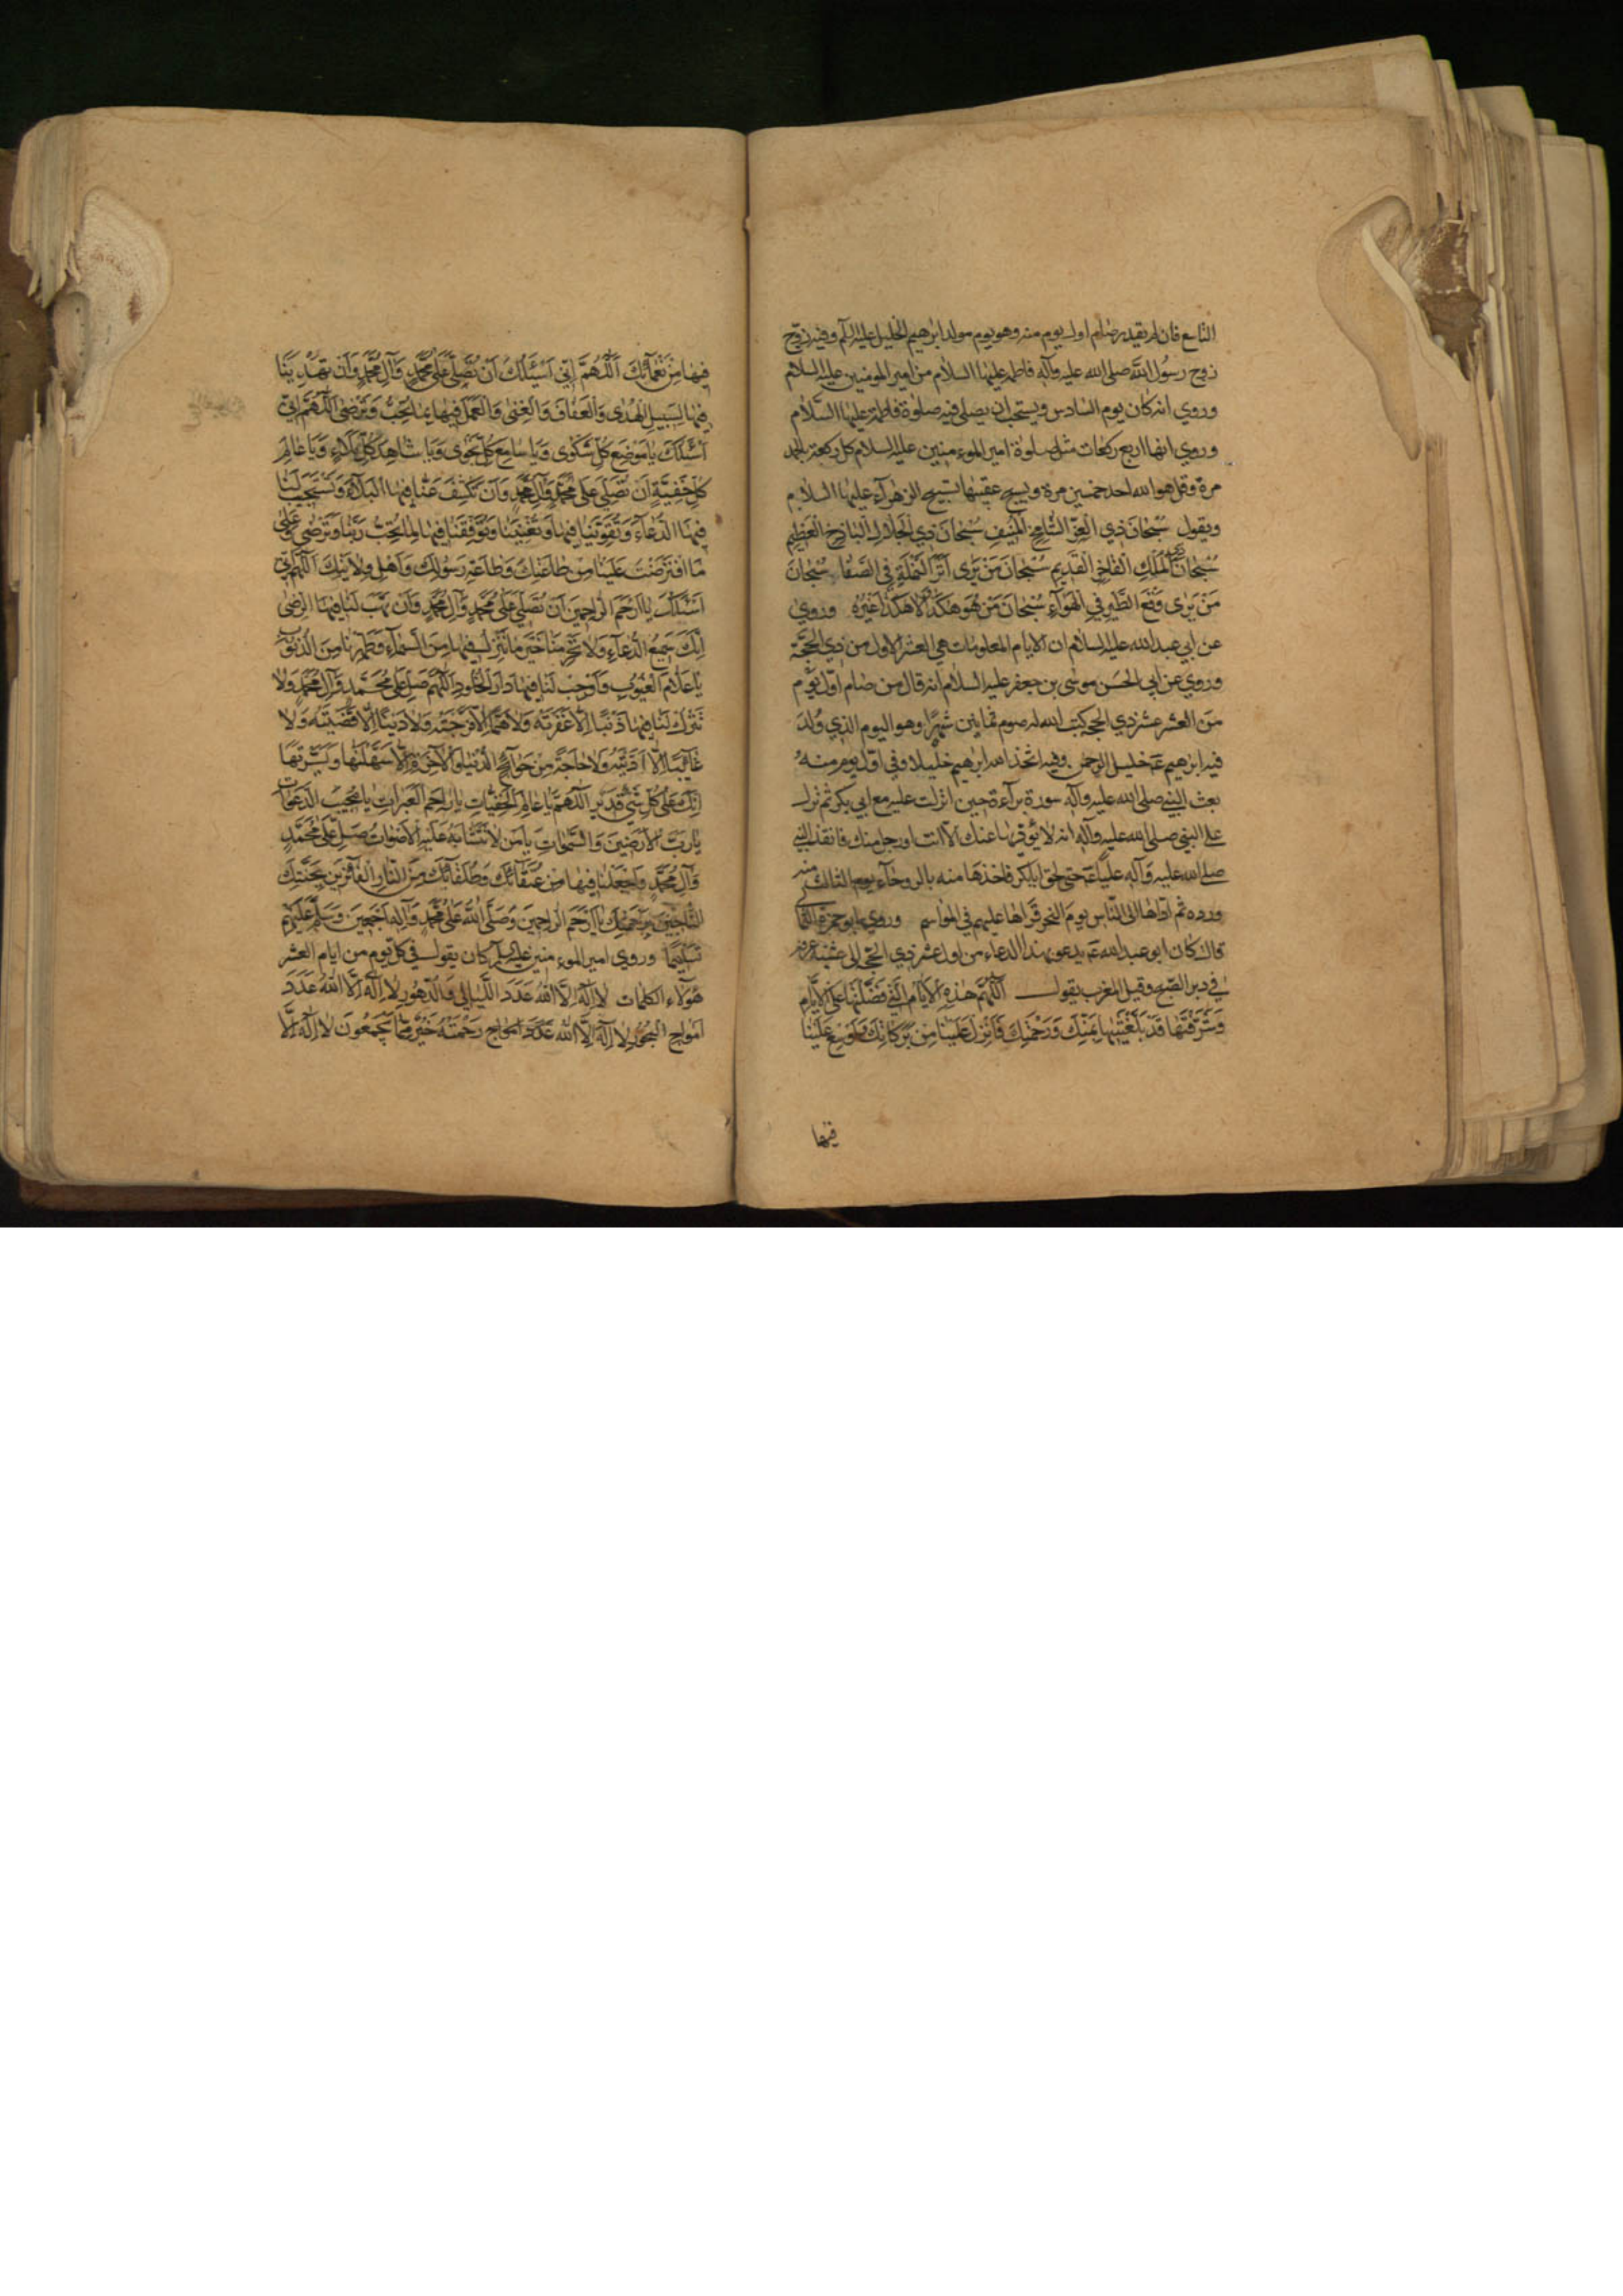 التاسع فان لم يقدر صام اول يوم منه وهو يوم مولد ابرهيم الخليل عليه السلم وفيه زوج
زوج رسول الله صلى الله عليه وآله فاطمه عليها السلام من امير المومنين عليه السلام
وروي انه كان يوم السادس ويستحب ان يصلى فيه صلوة فاطمة عليها السلام
وروي انها اربع ركعات مثل صلوة امير الموء منين عليه السلام كل ركعة بالحمد
مرة وقل هو الله احد خمسين مرة ويسبح عقيبها تسبيح الزهرآء عليها السلام
ويقول سُبْحانَ ذي العِزِّ الشّامِخِ المُنيفِ سُبْحانَ ذِي الجَلالِ الباذِخِ العَظيمِ
سُبْحانَ المَلِكِ الفاخِرِ القَديمِ سُبْحانَ مَنْ يَرى اَثَرَ النَّمْلَةِ فِي الصَّفا سُبْحانَ
مَنْ يَرى وَقْعَ الطَّيْرِ فِي الْهَوآءِ سُبْحانَ مَنْ هُوَ هكَذا لا هكَذا غَيْرُهُ وروي
عن ابي عبد الله عليه السلام ان الايام المعلومات هي العشر الاول من ذي الحجة
وروي عن ابي الحسن موسى بن جعفر عليه السلام انه قال من صام اول يوم
من العشر عشر ذي الحجه كتب الله له صوم ثمانين شهرًا وهو اليوم الذي وُلدَ
فيه ابرهيم عَه خليل الرحمن وفيه اتخذ الله ابرهيم خليلا وفي اوّل يوم منه
بعث النبي صلى الله عليه وآله سورة برآءة حين انزلت عليه مع ابي بكر ثم نزل
على النبي صلى الله عليه وآله انه لا يؤديها عنك الا انت او رجل منك فانفذ النبي
صلى الله عليه وآله عليًا عَه حتى لحق ابابكر فاخذها منه بالروحآء يوم الثالث منه
ورده ثم اداها الى الناس يوم النحر قراها عليهم في المواسم وروي ابو حمزة الثما
قال كان ابو عبد الله عَه يدعو بهذا الدعاء من اول عشر ذي الحجه الى عشية عرفه
في دبر الصبح وقبل المغرب يقول اَللّهُمَّ هذِهِ الاَيّامُ الَّتي فَضَّلْتَها عَلَى الاَيّامِ
وَشَرَّفْتَها قَدْ بَلَّغْتَنيها بِمَنِّكَ وَرَحْمَتِكَ فَاَنْزِلْ عَلَيْنا مِنْ بَرَكاتِكَ وَاَوْسِعْ عَلَيْنا
فيها
فيها مِنْ نَعْمآئِكَ اَللّهُمَّ اِنّي اَسْئَلُكَ اَنْ تُصَلِّيَ عَلى مُحَمَّدٍ وَآلِ مُحَمَّدٍ وَاَنْ تَهْدِيَنا
فيها لِسَبيلِ الْهُدى وَالْعَفافِ وَالْغِنى وَالْعَمَلِ فيها بِما تُحِبُّ وَتَرْضى اَللّهُمَّ اِنّي
اَسْئَلُكَ يا مَوْضِعَ كُلِّ شَكْوى وَيا سامِعَ كُلِّ نَجْوى وَيا شاهِدَ كُلِّ مَلاءٍ وَيا عالِمَ
كُلِّ خَفِيَّةٍ اَنْ تُصَلِّيَ عَلى مُحَمَّدٍ وَآلِ مُحَمَّدٍ وَاَنْ تَكْشِفَ عَنّا فيهَا الْبَلآءَ وَتَسْتَجيبَ لَنا
فيهَا الدُّعآءَ وَتُقَوِّيَنا فيها وَتُعينَنا وَتُوَفِّقَنا فيها لِما تُحِبُّ رَبَّنا وَتَرْضى وَعَلى
مَا افْتَرَضْتَ عَلَيْنا مِنْ طاعَتِكَ وَطاعَةِ رَسُولِكَ وَاَهْلِ وِلايَتِكَ اَللّهُمَّ اِنّي
اَسْئَلُكَ يا اَرْحَمَ الرّاحِمينَ اَنْ تُصَلِّيَ عَلى مُحَمَّدٍ وَآلِ مُحَمَّدٍ وَاَنْ تَهَبَ لَنا فيهَا الرِّضى
اِنَّكَ سَميعُ الدُّعآءِ وَلا تَحْرِمْنا خَيْرَ ما تُنْزِلُ فيها مِنَ السَّمآءِ وَطَهِّرْنا مِنَ الذُّنُوبِ
يا عَلّامَ الْغُيُوبِ وَاَوْجِبْ لَنا فيها دارَ الْخُلُودِ اَللّهُمَّ صَلِّ عَلى مُحَمَّدٍ وَآلِ مُحَمَّدٍ وَلا
تَتْرُكْ لَنا فيها ذَنْبًا اِلّا غَفَرْتَهُ وَلا هَمًّا اِلّا فَرَّجْتَهُ وَلا دَيْنًا اِلّا قَضَيْتَهُ وَلا
غآئِبًا اِلّا اَدَّيْتَهُ وَلا حاجَةً مِنْ حَوآئِجِ الدُّنْيا وَالآخِرَةِ اِلّا سَهَّلْتَها وَيَسَّرْتَها
اِنَّكَ عَلى كُلِّ شَيْءٍ قَديرٌ اَللّهُمَّ يا عالِمَ الْخَفِيّاتِ يا راحِمَ الْعَبَراتِ يا مُجيبَ الدَّعَواتِ
يا رَبَّ الاَرَضينَ وَالسَّمواتِ يا مَنْ لا تَتَشابَهُ عَلَيْهِ الاَصْواتُ صَلِّ عَلى مُحَمَّدٍ
وَآلِ مُحَمَّدٍ وَاجْعَلْنا فيها مِنْ عُتَقآئِكَ وَطُلَقآئِكَ مِنَ النّارِ الْفآئِزينَ بِجَنَّتِكَ
النّاجينَ بِرَحْمَتِكَ يا اَرْحَمَ الرّاحِمينَ وَصَلَّى اللهُ عَلى مُحَمَّدٍ وَآلِهِ اَجْمَعينَ وَسَلَّمَ عَلَيْهِمْ
تَسْليمًا وروي امير الموء منين عليه السلم كان يقول في كل يوم من ايام العشر
هؤلآء الكلمات لا اِلهَ اِلَّا اللهُ عَدَدَ اللَّيالي وَالدُّهُورِ لا اِلهَ اِلَّا اللهُ عَدَدَ
اَمْواجِ الْبُحُورِ لا اِلهَ اِلَّا اللهُ رَحْمَتُهُ خَيْرٌ مِمّا يَجْمَعُونَ لا اِلهَ اِلَّا